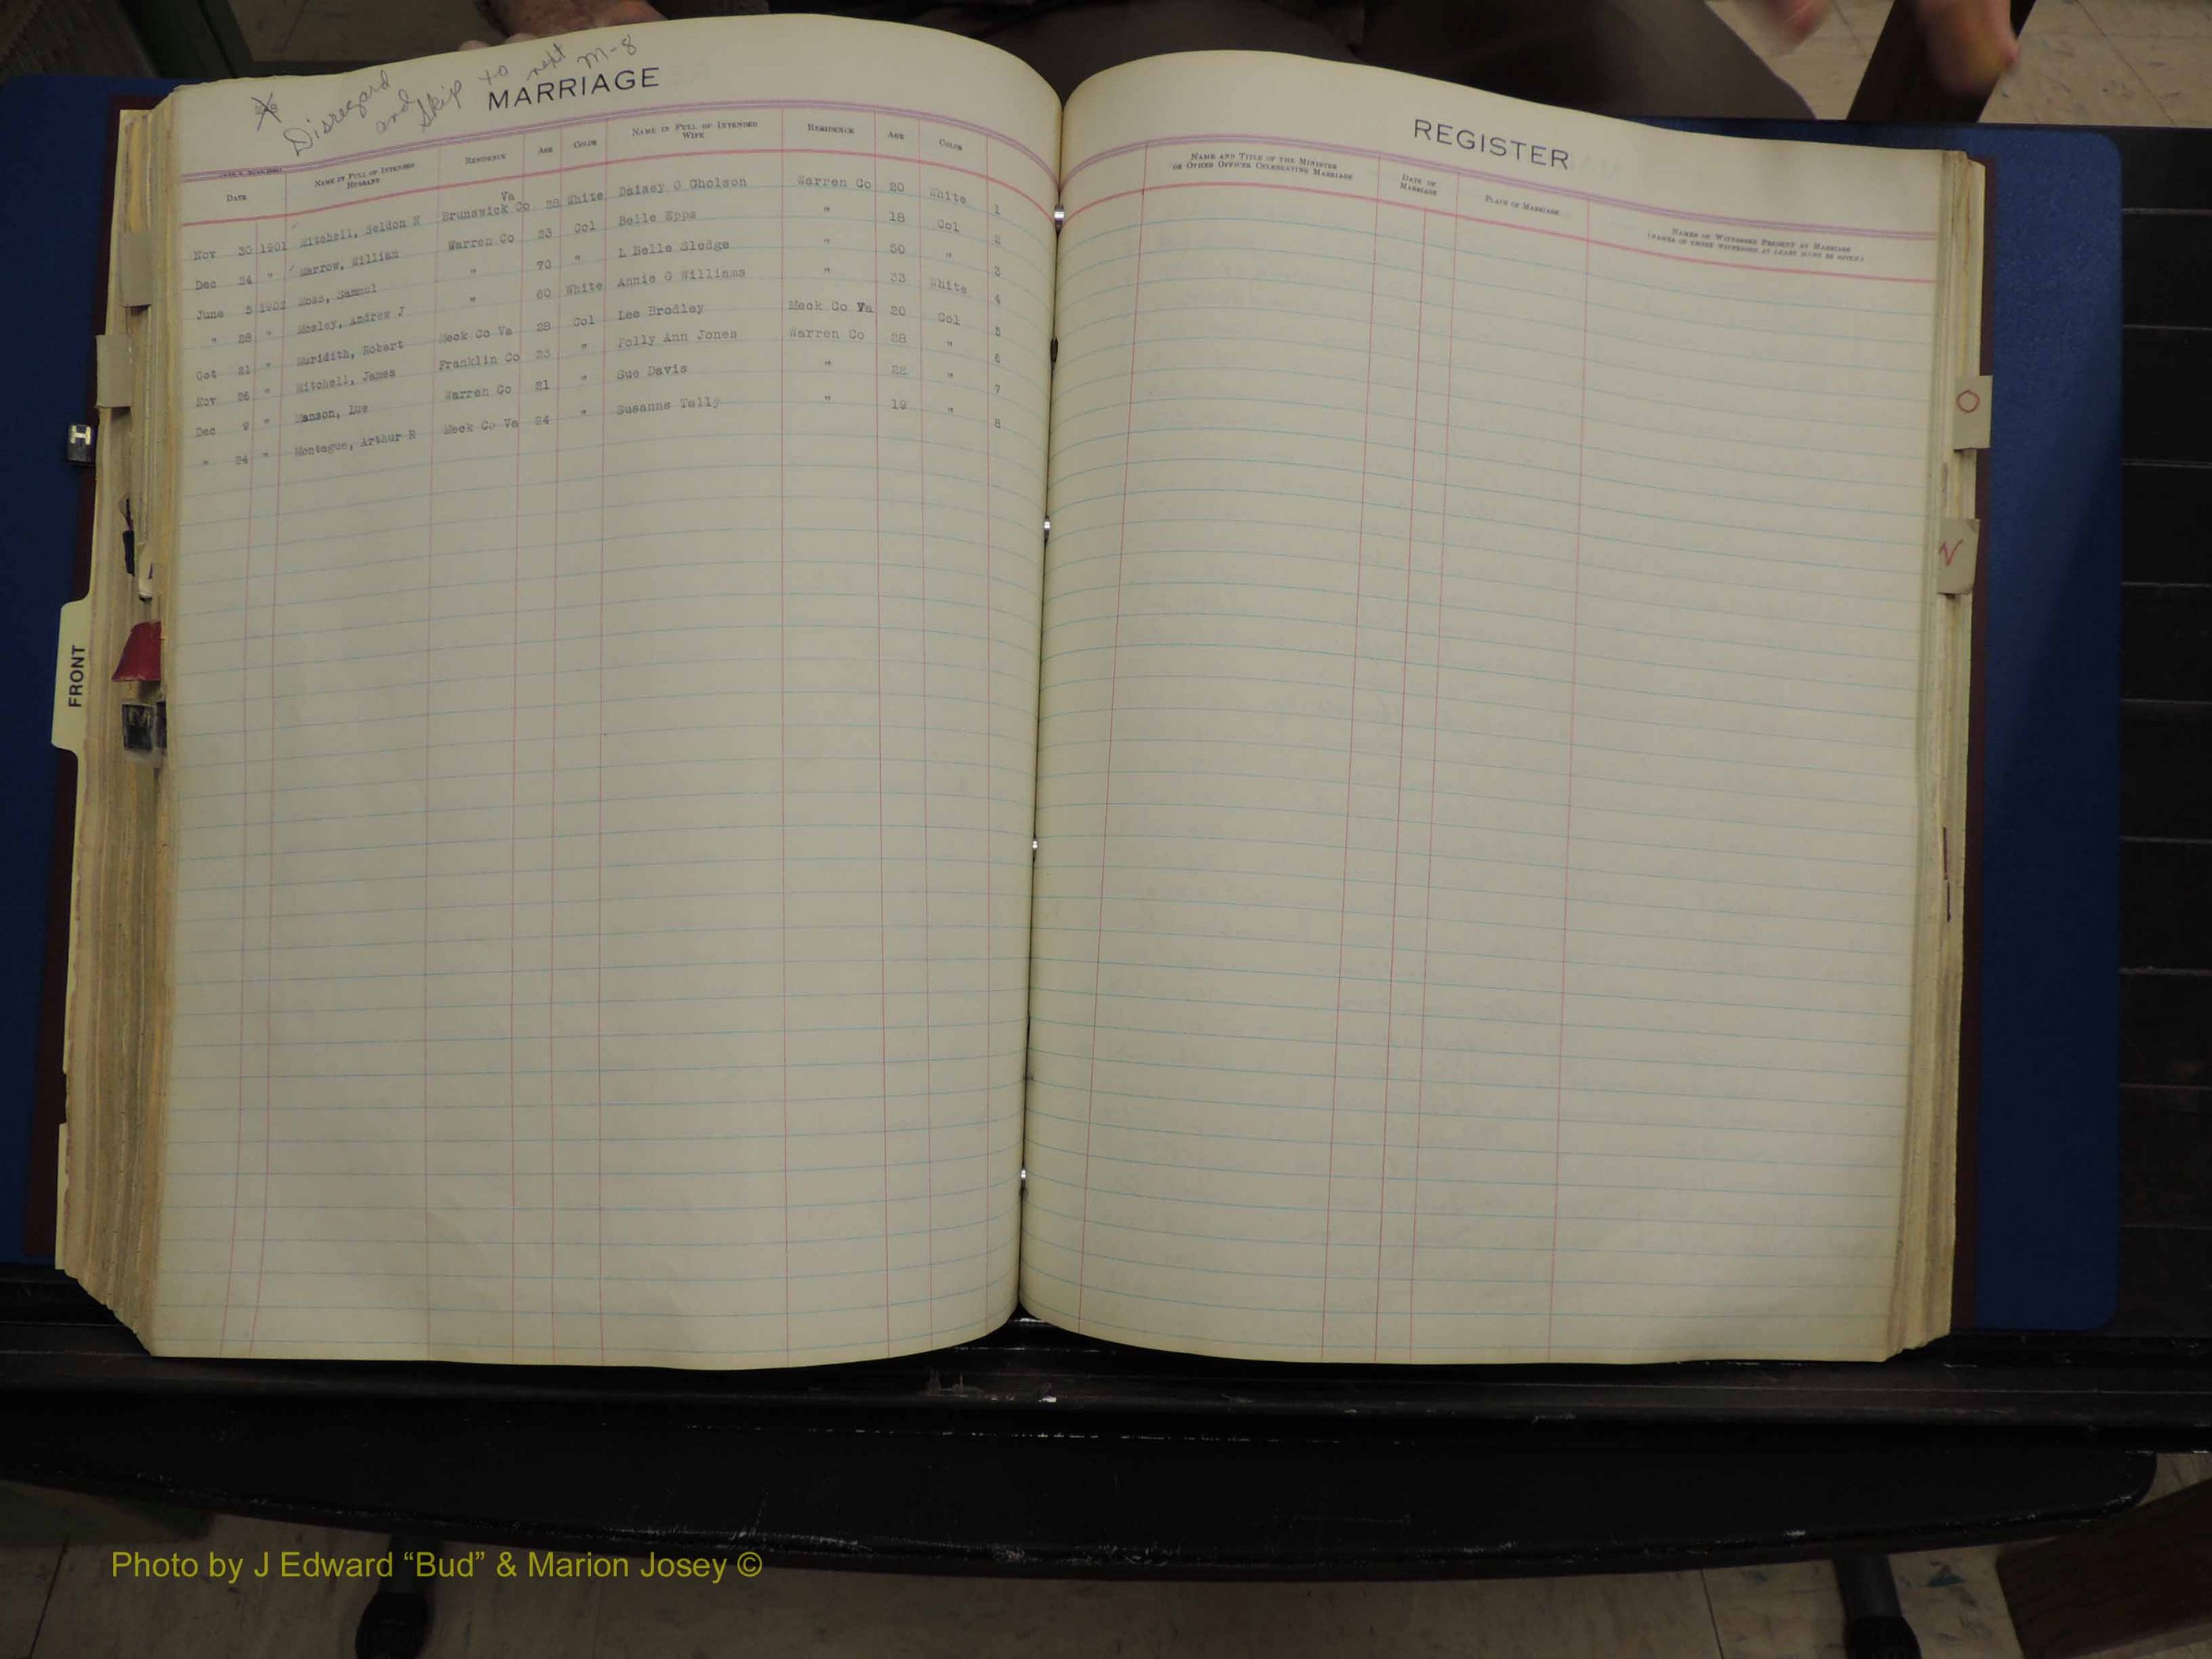 Disregard and skip to next M-8
MARRIAGE
DATE NAME IN FULL OF INTENDED HUSBAND RESIDENCE AGE COLOR NAME IN FULL OF INTENDED WIFE RESIDENCE AGE COLOR
Nov 30 1901 Mitchell, Seldon Brunswick Co Va 28 White Daisey O Gholson Warren Co 20 White 1
Dec 24 " Marrow, William Warren Co 23 Col Belle Epps " 18 Col 2
June 5 Moss, Samuel " 70 " L Belle Sledge " 50 " 3
" 28 " Mosley, Andrew J " 60 White Annie G Williams " 33 White 4
Oct 21 " Muridith, Robert Meck Co Va 28 Col Lee Brodley Meck Co Va 20 Col 5
Nov 26 " Mitchell, James Franklin Co 23 " Polly Ann Jones Warren Co 28 " 6
Dec 9 " Manson, Lue Warren Co 21 " Sue Davis " 22 " 7
" 24 " Montague, Arthur R Meck Co Va 24 " Susanna Tally " 19 " 8
REGISTER
NAME AND TITLE OF THE MINISTER OR OTHER OFFICER CELEBRATING MARRIAGE DATE OF MARRIAGE PLACE OF MARRIAGE NAMES OF WITNESSES PRESENT AT MARRIAGE
(NAMES OF THREE WITNESSES AT LEAST MUST BE GIVEN)
O
N
FRONT
M
Photo by J Edward “Bud” & Marion Josey ©